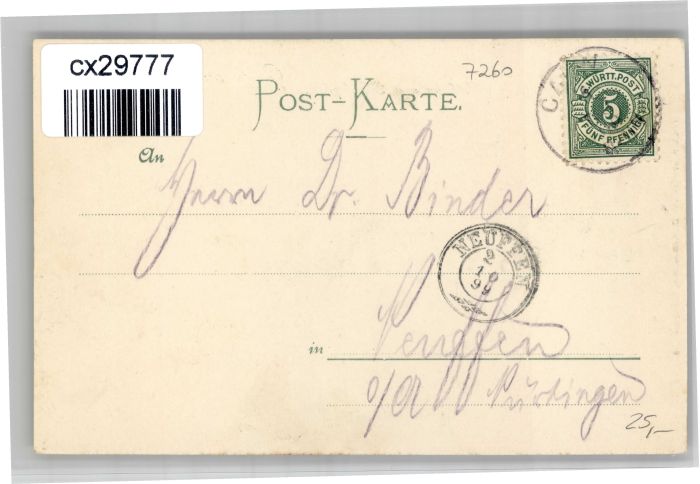 cx29777
7260
POST-KARTE.
CALW
K. WÜRTT. POST
5
FÜNF PFENNIG
An
Herrn Dr. Binder
NEUFFEN
2
10
99
in Neuffen
o/A Nürtingen
25,-